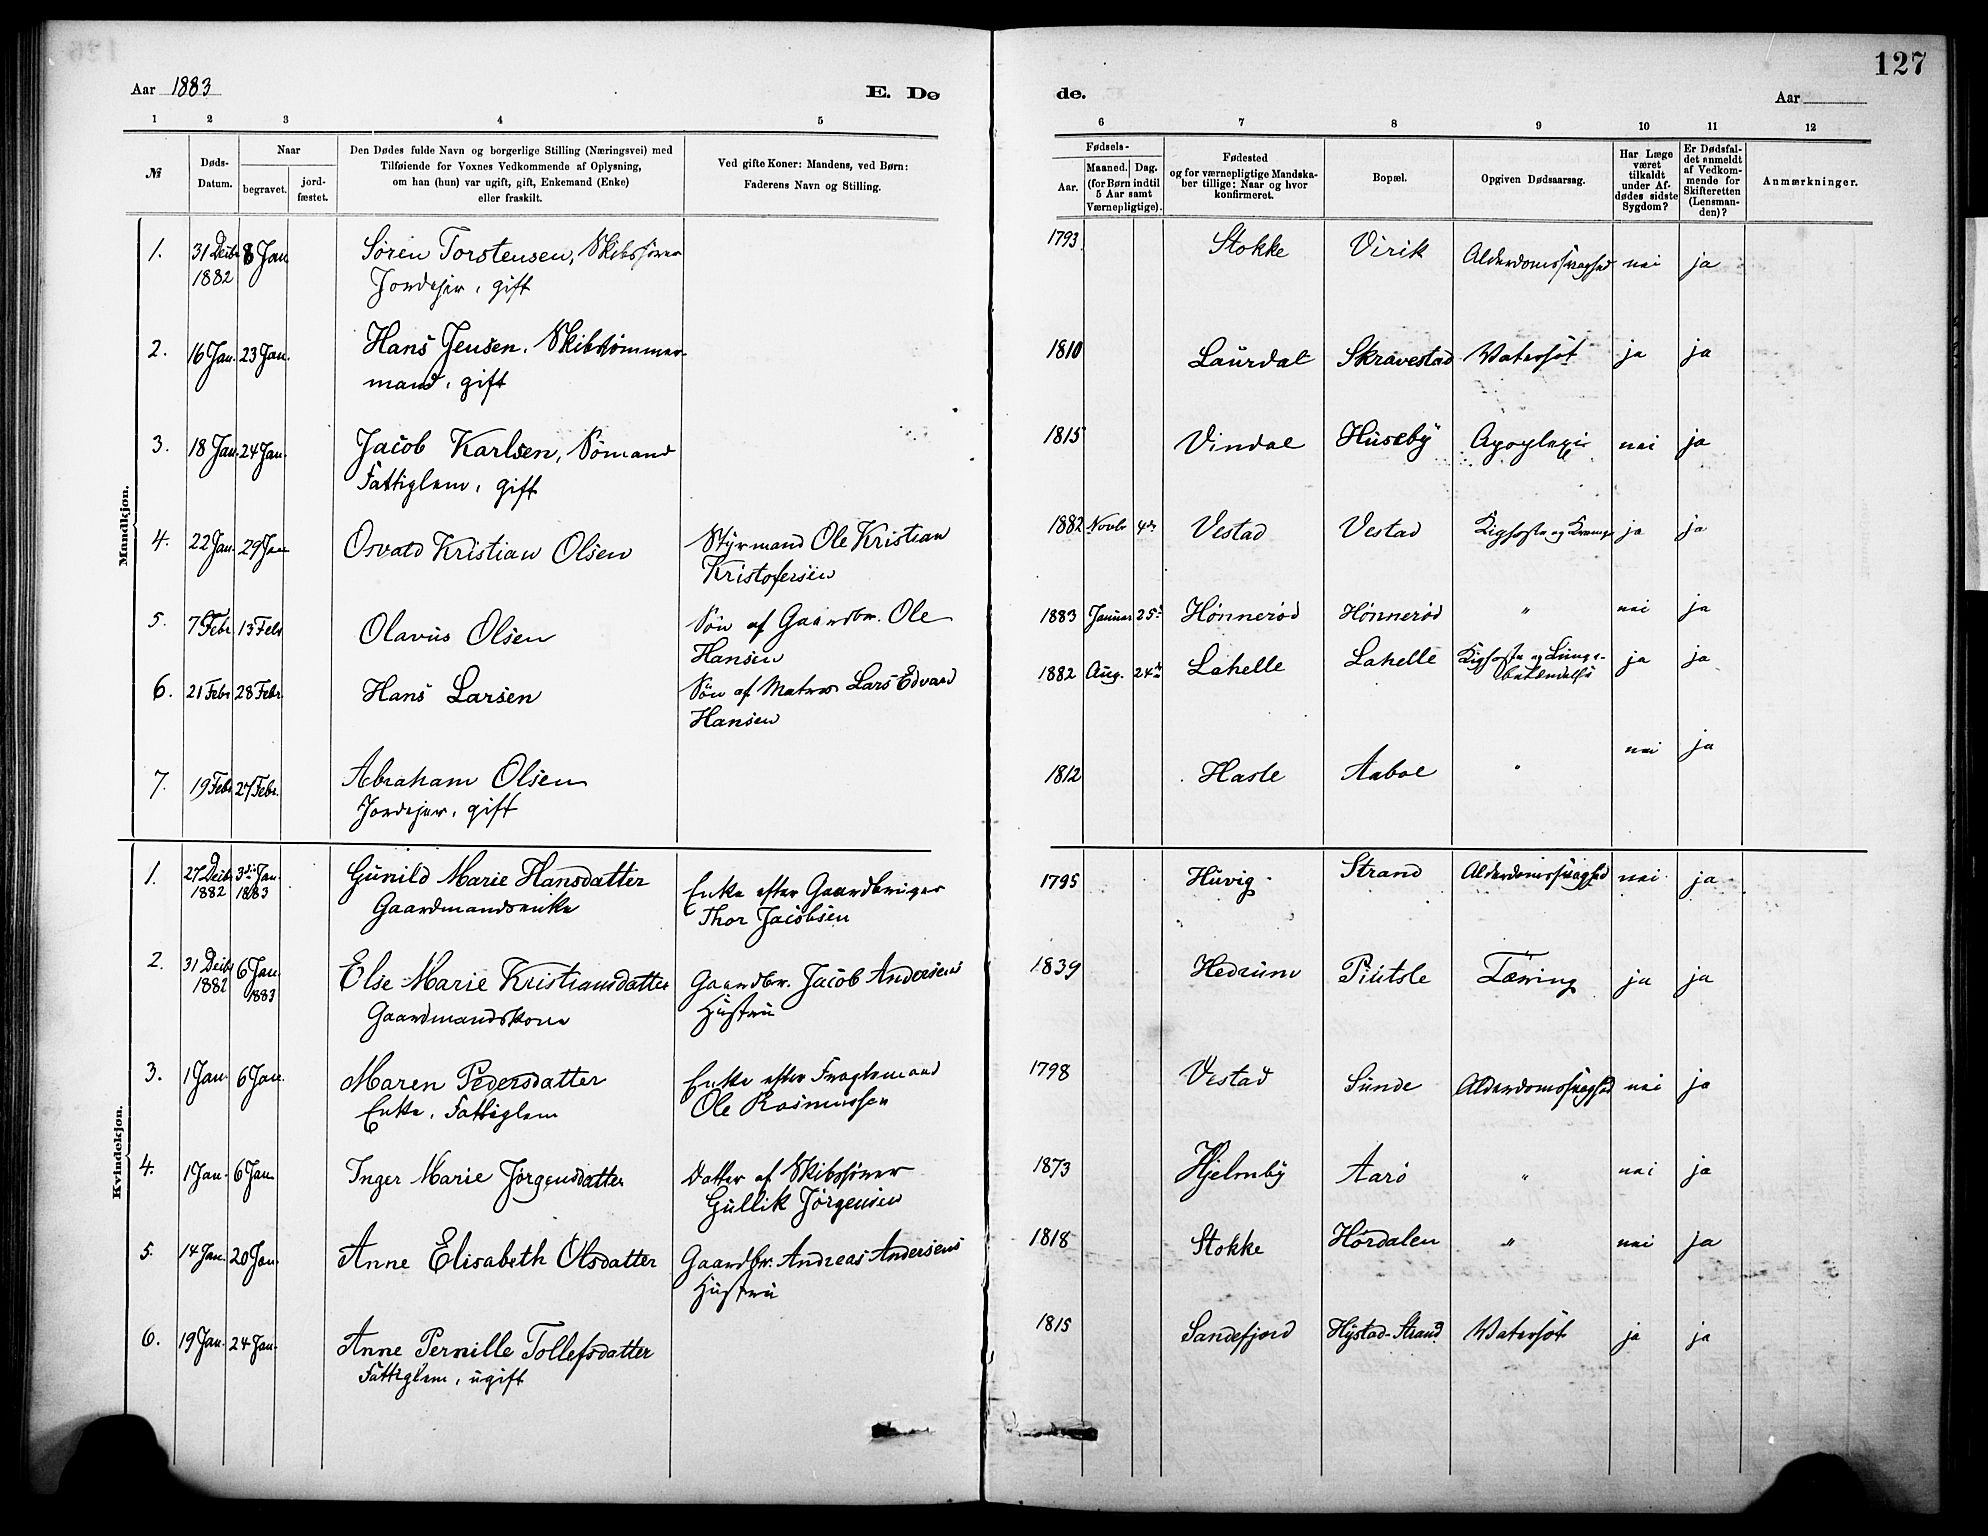 127
Aar 1883
E. Dø
de.
Aar
1 2 3 4 5
6 7 8 9 10 11 12
№
Døds-
Datum.
Naar
begravet.
jord-
fæstet.
Den Dødes fulde Navn og borgerlige Stilling (Næringsvei) med
Tilføiende for Voxnes Vedkommende af Oplysning,
om han (hun) var ugift, gift, Enkemand (Enke)
eller fraskilt.
Ved gifte Koner: Mandens, ved Børn:
Faderens Navn og Stilling.
Fødsels-
Aar.
Maaned. Dag.
(for Børn indtil
5 Aar samt
Værnepligtige).
Fødested
og for værnepligtige Mandska-
ber tillige: Naar og hvor
konfirmeret.
Bopæl.
Opgiven Dødsaarsag.
Har Læge
været
tilkaldt
under Af-
dødes sidste
Sygdom?
Er Dødsfal-
det anmeldt
af Vedkom-
mende for
Skifteretten
(Lensman-
den)?
Anmærkninger.
Mandkjøn.
1. 31 Decbr 8 Jan Søren Torstensen, Skibsfører 1793 Stokke Virik Alderdomssvaghed nei ja
1882 Jordejer, gift
2. 16 Jan. 23 Jan. Hans Jensen, Skibstømmer- 1810 Laurdal Skravestad Vatersot ja ja
mand, gift
3. 18 Jan. 24 Jan. Jacob Karlsen, Sømand 1815 Vindal Huseby Apoplexi nei ja
Fattiglem, gift
4. 22 Jan. 29 Jan Osvald Kristian Olsen Styrmand Ole Kristian 1882 Novbr 4de Vestad Vestad Kighoste og Krampe ja ja
Kristofersen
5. 7 Febr. 13 Febr Olavus Olsen Søn af Gaardbr. Ole 1883 Januar 25 Hønnerød Hønnerød " nei ja
Hansen
6. 21 Febr 28 Febr. Hans Larsen Søn af Matros Lars Edvard 1882 Aug. 24de Lahelle Lahelle Kighoste og Lunge- ja ja
Hansen betændelse
7. 19 Febr 27 Febr. Abraham Olsen 1812 Hasle Aaboe " nei ja
Jordejer, gift
Kvindekjøn.
1. 27 Decbr 3die Jan Gunild Marie Hansdatter Enke efter Gaardbruger 1795 Huvig Strand Alderdomssvaghed nei ja
1882 1883 Gaardmandsenke Thor Jacobsen
2. 31 Decbr 6 Jan. Else Marie Kristiansdatter Gaardbr. Jacob Andersens 1839 Hedrum Piutsle Tæring ja ja
1882 1883 Gaardmandskone Hustru
3. 1 Jan. 6 Jan. Maren Pedersdatter Enke efter Fragtemand 1798 Vestad Sunde Alderdomssvaghed nei ja
Enke, Fattiglem Ole Rasmussen
4. 1 Jan. 6 Jan Inger Marie Jørgensdatter Datter af Skibsfører 1873 Hjelmby Aarø " nei ja
Gullik Jørgensen
5. 14 Jan. 20 Jan. Anne Elisabeth Olsdatter Gaardbr. Andreas Andersens 1818 Stokke Hørdalen " nei ja
Hustru
6. 19 Jan. 24 Jan. Anne Pernille Tollefsdatter 1815 Sandefjord Hystad-Strand Vatersot ja ja
Fattiglem, ugift